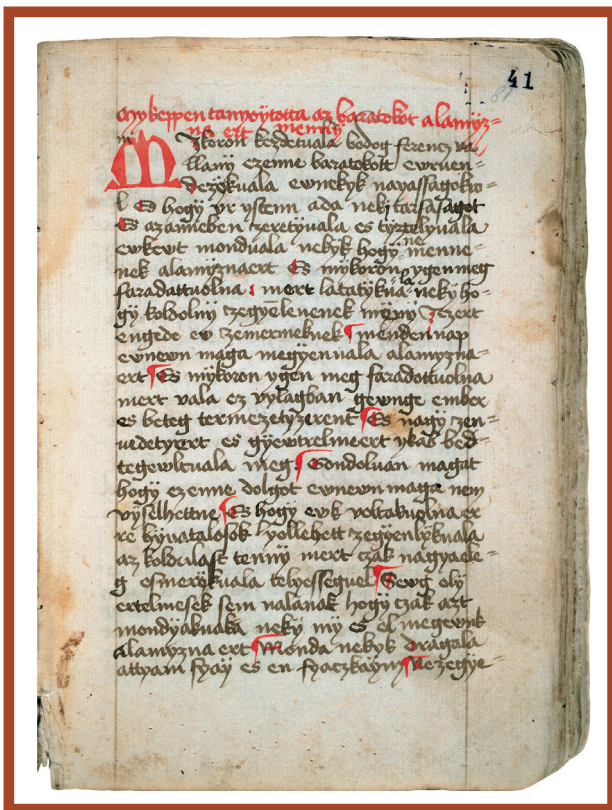 41
Mykeppen tanoytotta az baratokot alamyz-
na ert menny
Mykoron kezdetuala bodog ferencz va-
llany ezenne baratokott ewruen-
dezykuala ewnekyk nayassagokro-
l Es hogy vr ystenn ada neki tarsasagot
Es azanneben zeretyuala es tyztelyuala
ewkewt monduala nekyk hogy ne menne-
nek alamyznaert Es mykoron ygen meg
faradattuolna mert latatykuala neky ho-
gy koldolny zegyelenenek menny ezert
engede ew zemermeknek menden nap
ewnewn maga megyenuala alamyzna-
ert Es mykoron ygen meg faradottuolna
mert vala ez vylagban gewnge ember
es beteg termezetyzerent Es nagy zen-
uedetyert es gyewtrelmeert ykab bed-
tegewltuala meg Gondoluan magat
hogy ezenne dolgot ewnewn maga nem
vyselhettne Es hogy ewk voltakuolna er
re hyuatalosok yollehett zegyenlykuala
az koldulast tenny mert czak nagyaele-
g esmerykuala telyesseguel Sewg oly
ertelmesek sem nalanak hogy czak azt
mondyakuala neky my es el megewnk
alamyzna ert Monda nekyk dragala
attyam fyay es en fyaczkaym Ne zegye-